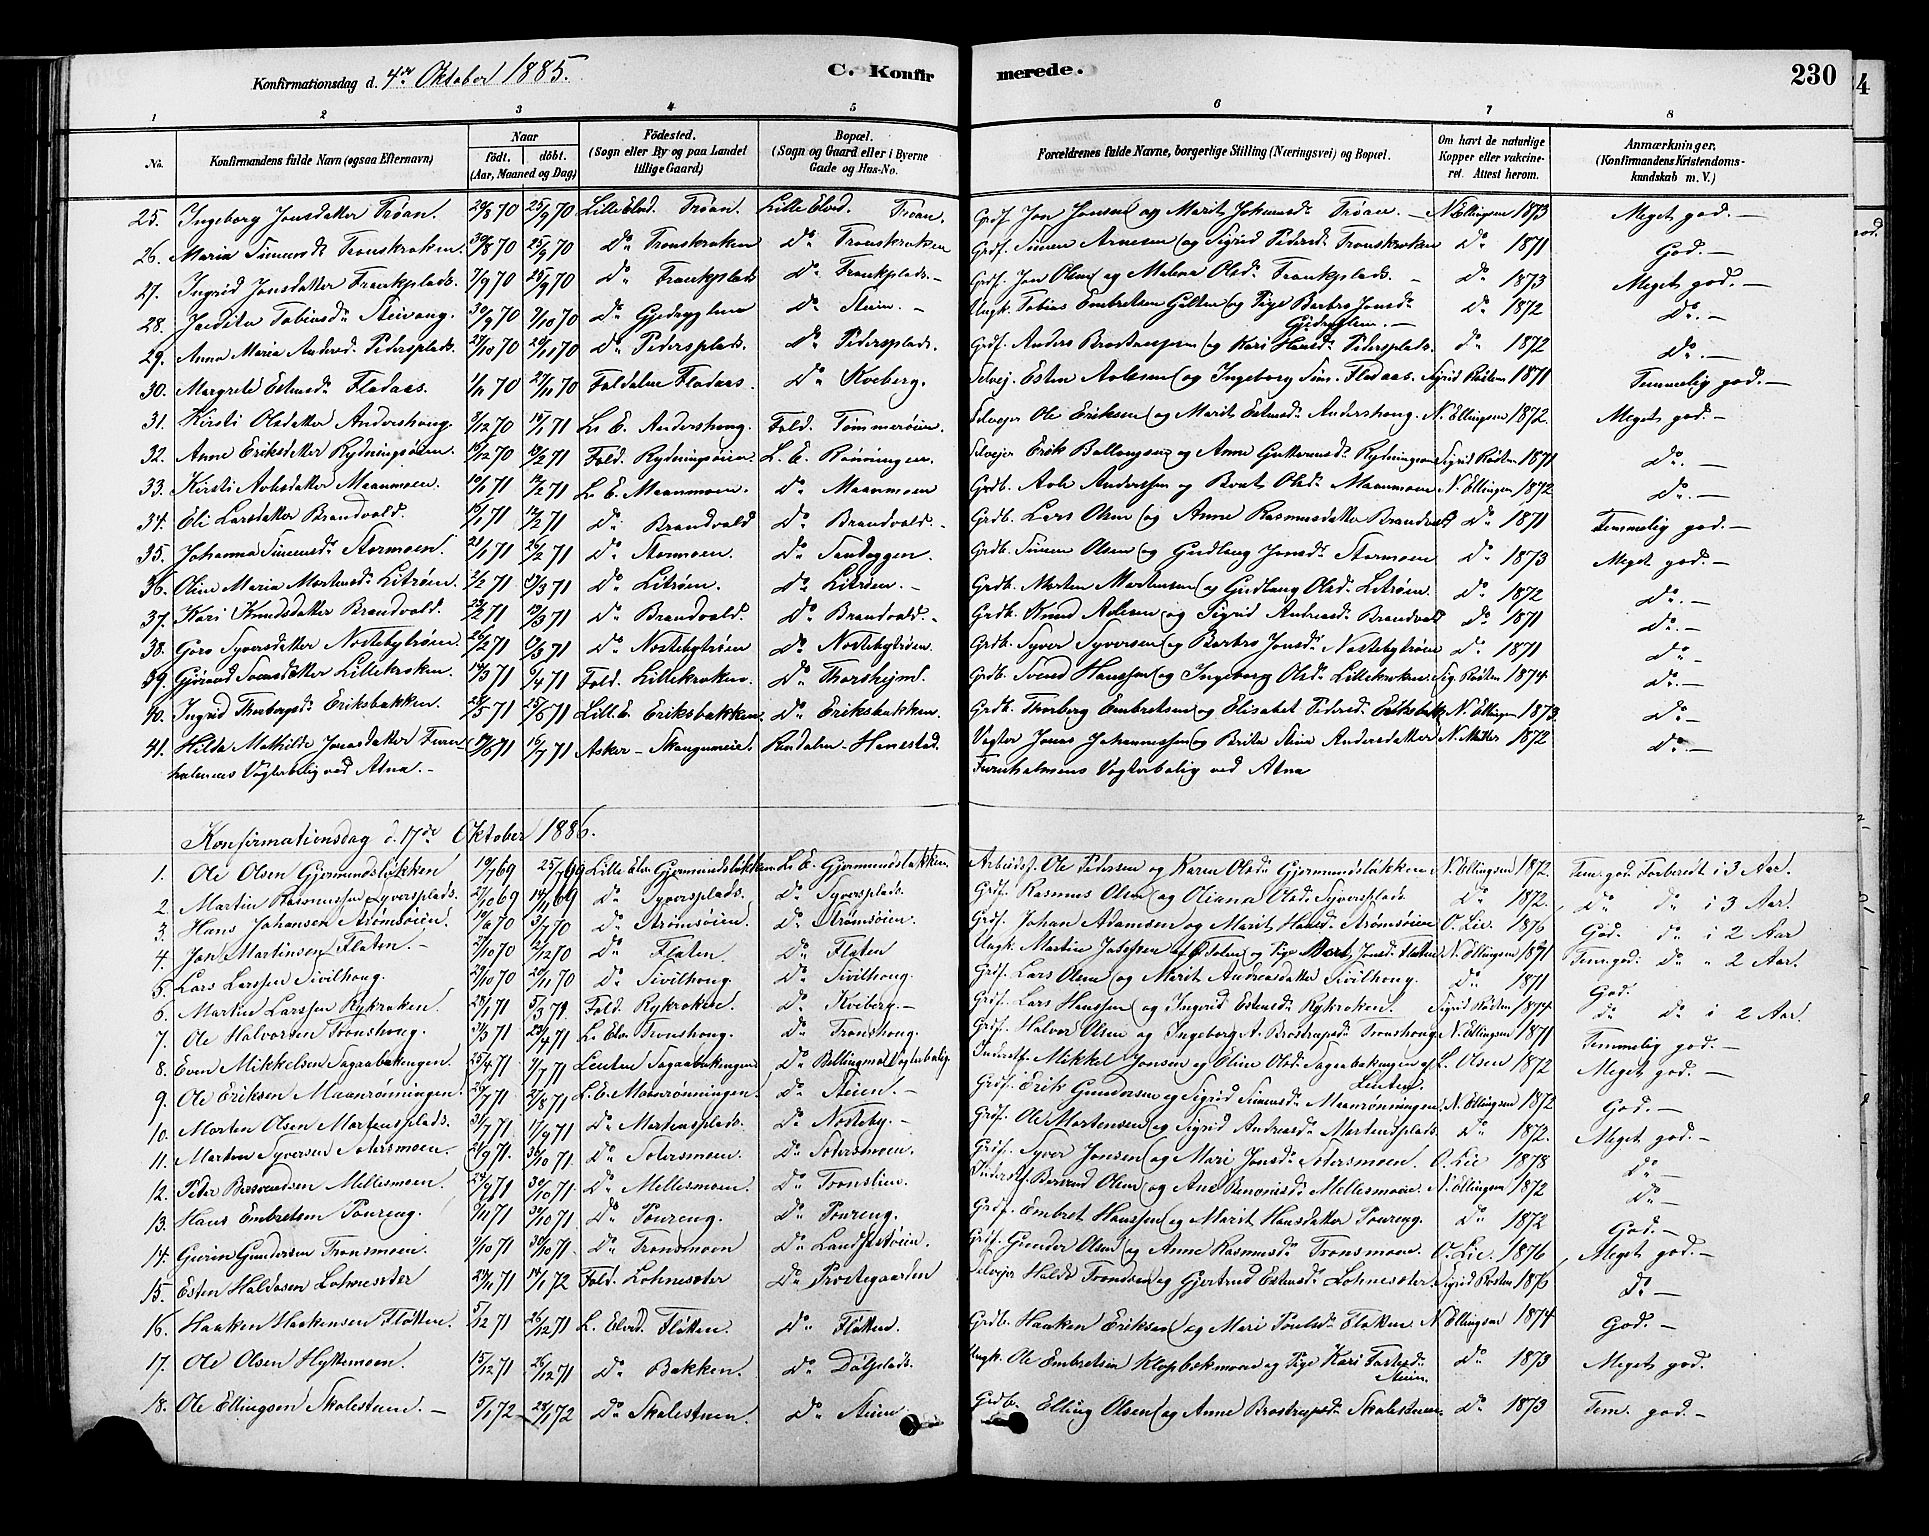 Konfirmationsdag d. 4de Oktober 1885. C. Konfirmerede. 230
1 2 3 4 5 6 7 8
No. Konfirmandens fulde Navn (ogsaa Efternavn) Naar födt. döbt. (Aar, Maaned og Dag) Födested. (Sogn eller By og paa Landet tillige Gaard) Bopæl. (Sogn og Gaard eller i Byerne Gade og Hus-No. Forældrenes fulde Navne, borgerlige Stilling (Næringsvei) og Bopæl. Om havt de naturlige Kopper eller vakcineret. Attest herom. Anmærkninger, (Konfirmandens Kristendomskundskab m. V.)
25. Ingeborg Jonsdatter Trøan. 28/8 70 25/9 70 Lille Elvd. Trøan. Lille Elvd. Trøan. Grdf. Jon Jonsen og Marit Johannsd. Trøan. — N. Ellingsen 1873 Meget god. —
26. Maria Simensd. Tronskroken. 30/8 70 25/9 70 Do Tronskroken Do Tronskroken Grdf. Simen Arnesen og Sigrid Pedersd. Tronskroken Do 1871 God. —
27. Ingrid Jonsdatter Frankplads. 7/9 70 25/9 70 Do Frankplads Do Frankplads. — Grdf. Jon Olsen og Malena Olsd. Frankplads. — Do 1873 Meget god. —
28. Jardita Tobiasd. Steivang. 30/9 70 9/10 70 Do Gjedryglien Do Steien. — Ungk. Tobias Embretsen Galten og Pige Barbro Jonsd. Gjedryglien. — Do 1872 Do. —
29. Anna Maria Andersd. Pedersplads. 27/10 70 20/11 70 Do Pedersplads. Do Pedersplads. Grdf. Anders Brostrupsen og Kari Hansd. Pedersplads. Do 1872 Do. —
30. Margrete Estensd. Fladaas. 1/11 70 27/11 70 Foldalen Fladaas. Do Kveberg. Selvej. Esten Avlesen og Ingeborg Sim. Fladaas. Sigrid Røsten 1871 Temmelig god. —
31. Kirsti Olsdatter Andershoug. 9/12 70 15/1 71 L. E. Andershoug. Fold. Tømmerøien. Selvejer Ole Eriksen og Marit Estensd. Andershoug. N. Ellingsen 1872. Meget god. —
32. Anne Eriksdatter Rydningsøien. 10/12 70 12/2 71 Fold. Rydningsøien. L. E. Rønningen. Selvejer Erik Ballongsen og Anne Guttormsd. Rydningsøien Sigrid Røsten 1871 Do. —
33. Kirsti Avlesdatter Maanmoen. 10/1 71 12/2 71 L. E. Maanmoen. Do Maanmoen Grdb. Avle Anderssen og Berit Olsd. Maanmoen N. Ellingsen 1872 Do. —
34. Eli Larsdatter Brandvold. 15/1 71 12/2 71 Do. Brandvold Do Brandvold. — Grdb. Lars Olsen og Anne Rasmusdatter Brandvold Do 1871 Temmelig god. —
35. Johanna Simensd. Stormoen. 21/1 71 26/2 71 Do Stormoen. Do Sandeggen. Grdb. Simen Olsen og Gudlaug Jonsd. Stormoen Do 1873 Meget god. —
36. Oline Maria Mortensd. Litrøen. 2/2 71 19/3 71 Do Litrøen. Do Litrøen. — Grdb. Morten Mortensen og Gudlaug Olsd. Litrøen. Do 1872 Do. —
37. Kari Knudsdatter Brandvold. 22/2 71 19/3 71 Do Brandvold. Do Brandvold. — Grdb. Knud Avlesen og Sigrid Andreasd. Brandvold Do 1871 Do. —
38. Goro Syversdatter Nostebytrøen. 26/2 71 19/3 71 Do Nostebytrøen Do Nostebytrøen. Grdb. Syver Syversen og Barbro Jonsd. Nostebytrøien Do 1871 Do. —
39. Gjørand Svensdatter Lillekroken. 14/3 71 6/4 71 Fold. Lillekroken. Do Thorshejm. Grdb. Svend Hanssen og Ingeborg Olsd. Lillekroken Sig. Røsten 1874 Do. —
40. Ingrid Thorbergsd. Eriksbakken. 23/5 71 25/6 71 Lill. E. Eriksbakken. Do Eriksbakken. Grdb. Thorberg Embretsen og Elisabet Pedersd. Eriksbakk. N. Ellingsen 1873. Do. —
41. Hilda Mathilde Jonasdatter Furuholmens Vogterbolig ved Atna. — 71 16/7 71 Asker — Rendalen — Hanestad Vogter Jonas Johannessen og Brita Stine Andersdatter Furuholmens Vogterbolig ved Atna N. 1872 Do. —
Konfirmationsdag d. 17de Oktober 1886.
1. Ole Olsen Gjermundsløkken 19/7 69 25/7 69 Lille Elv. Gjermundsløkken L. E. Gjermundsløkken. Arbeidsf. Ole Pedersen og Karen Olsd. Gjermundsløkken. N. Ellingsen 1872. Tem. god. Forberedt i 3 Aar.
2. Martin Rasmussen Syversplads. 27/10 69 14/11 69 Do Syversplads. Do Syversplads. Grdf. Rasmus Olsen og Oliana Olsd. Syversplads Do 1872. Do Do i 3 Aar.
3. Hans Johansen Strømsøien. 19/6 70 3/7 70 Do Strømsøien. Do Strømsøien. Grdf. Johan Adamsen og Marit Hansd. Strømsøien O. Lie. 1876 God. Do i 2 Aar
4. Jon Martinsen Flaten. — 27/10 70 2/12 70 Do Flaten. Do Flaten Ungk. Martin Josefsen af Østolen og Pige Berit Jonsd. Flaten N. Ellingsen 1871 Tem. god. Do " 2 Aar.
5. Lars Larssen Sivilhoug. 29/10 70 20/11 70 Do Sivilhoug. Do Sivilhoug. Grdf. Lars Olsen og Marit Andreasdatter Sivilhoug. Do 1871 God.
6. Martin Larssen Rykroken. 28/1 71 5/3 71 Fold. Rykroken. Do Kveberg. — Grdf. Lars Hanssen og Ingrid Estensd. Rykroken. Sigrid Røsten 1874 Do Do i 2 Aar.
7. Ole Halvorsen Tronshoug. 31/3 71 23/4 71 L. Elv. Tronshoug. Do Tronshoug. Grdf. Halvor Olsen og Ingeborg A. Brostrupsd. Tronshoug. N. Ellingsen 1871 Temmelig god. —
8. Even Mikkelsen Sagaabakengen. 25/4 71 2/7 71 Løiten Sagaabakengen Do Bellingmo Vogterbolig Inderstf. Mikkel Jonsen og Oline Olsd. Sagaabakengen af Løiten. L. Olsen 1872 Meget god. —
9. Ole Eriksen Maanrønningen. 26/7 71 27/8 71 L. E. Maanrønningen. Do Steien. — Grdf. Erik Gundersen og Sigrid Simensd. Maanrønningen. N. Ellingsen 1872 God. —
10. Morten Olsen Mortensplads. 31/7 71 17/9 71 Do Mortensplads. Do Nosteby. — Grdf. Ole Mortensen og Sigrid Andreasd. Mortensplads. Do 1872. Meget god. —
11. Morten Syversen Sotersmoen. 24/9 71 30/10 71 Do Sotersmoen. Do Sotersmoen. Grdf. Syver Jonsen og Mari Jonsd. Sotersmoen. O. Lie 1878 Do —
12. Peder Bersvendsen Mellesmoen. 29/9 71 30/10 71 Do Mellesmoen. Do Tronslien. Inderstf. Bersvend Olsen og Ane Benonisd. Mellesmoen. N. Ellingsen 1872 Do —
13. Hans Embretsen Poureng. 71 30/10 71 Do Poureng. Do Poureng. Grdf. Embret Hanssen og Marit Hansdatter Poureng. Do 1872 God. —
14. Gunder Gundersen Tronsmoen. 2/10 71 30/10 71 Do Tronsmoen Do Landsetøien. Grdf. Gunder Olsen og Anne Rasmusd. Tronsmoen. O. Lie. 1876 Meget god. —
15. Esten Haldosen Lohnesæter 24/11 71 14/1 72 Fold. Lohnesæter Do Prestegaarden Selvejer Haldo Trondsen og Gjertrud Estensd. Lohnesæter. Sigrid Røsten 1876 Do —
16. Haaken Haakensen Fløtten. 5/12 71 26/12 71 L. Elvd. Fløtten. Do Fløtten. Grdb. Haaken Eriksen og Mari Poulsd. Fløtten. N Ellingsen 1874 God. —
17. Ole Olsen Hyttemoen. 15/12 71 26/12 71 Do Bakken. Do Dølplads. Ungk. Ole Embretsen Klopbakmoen og Pige Kari Tostensd. Steien. Do 1873 Meget god.
18. Ole Ellingsen Skolestuen. — 5/1 72 29/1 72 Do Skolestuen. Do Steien. Grdb. Elling Olsen og Anne Brostrupsd. Skolestuen. Do 1873 Tem. god. —